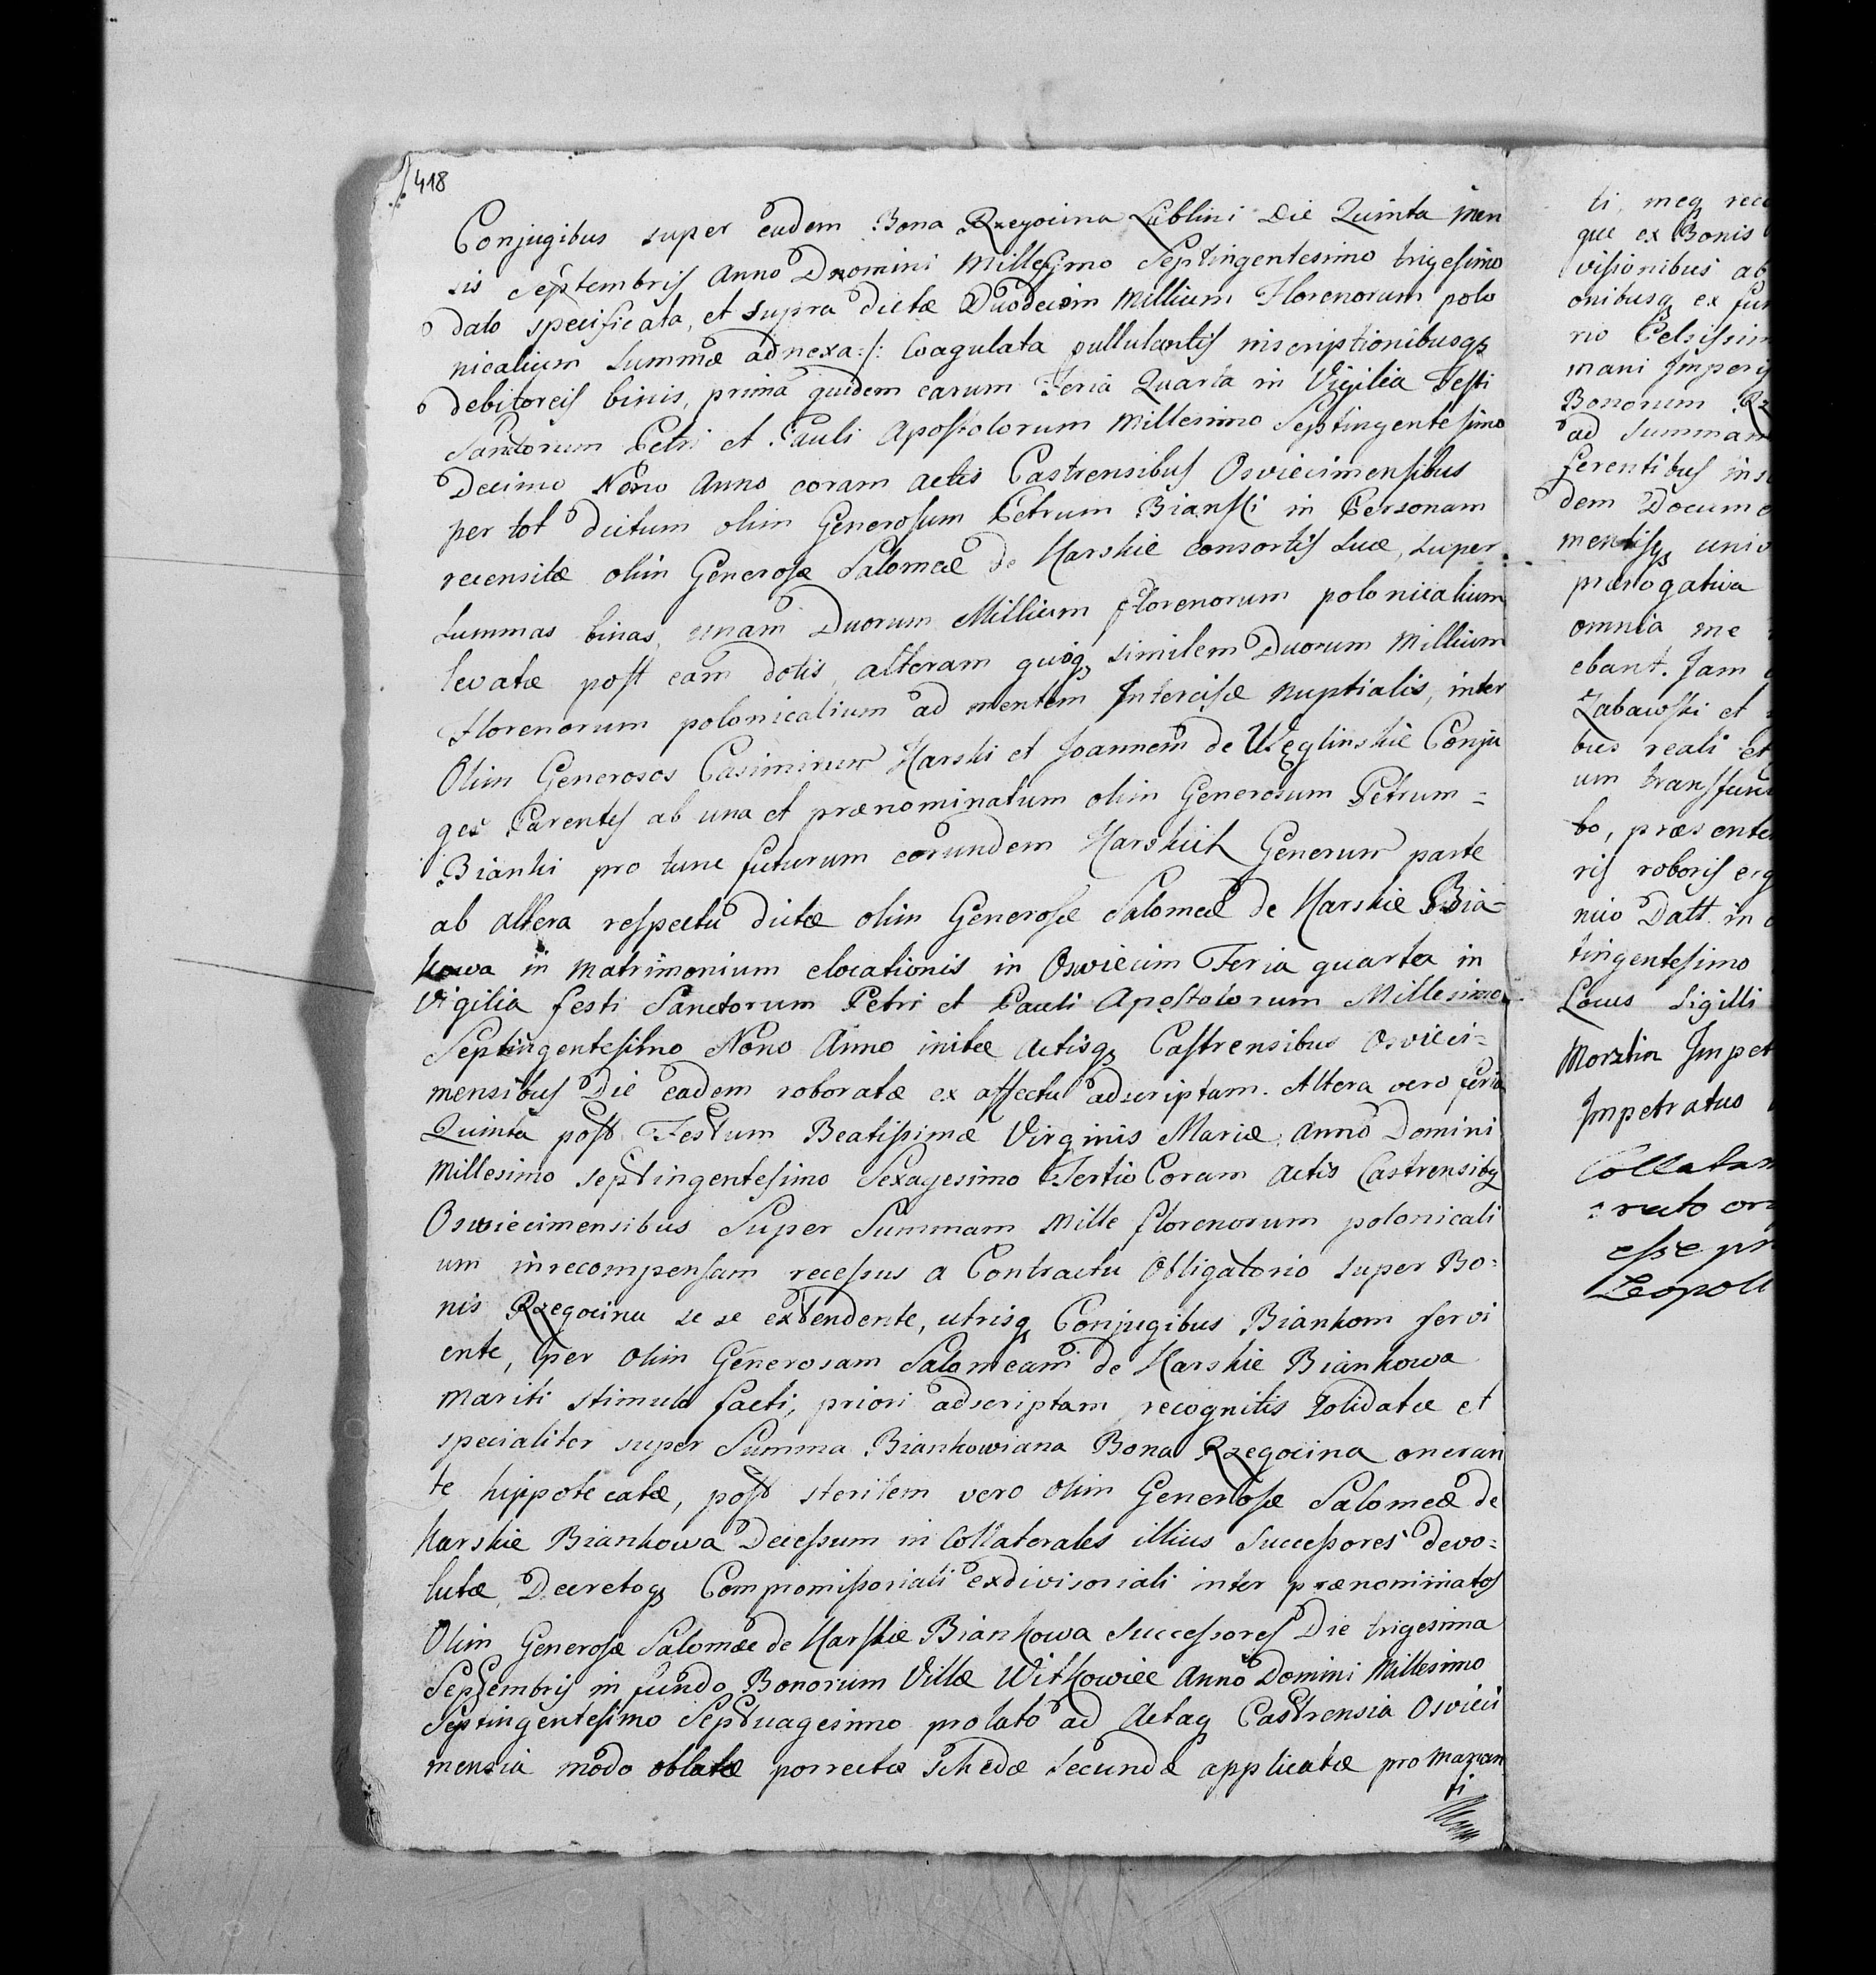 418
Conjugibus super eadem Bona Rzegocina Lublini Die Quinta men
sis Septembris Anno Domini Millesimo Septingentesimo trigesimo
dato specificata, et supra dictæ Duodecim Millium Florenorum polo
nicalium Summæ adnexa :/: Coagulata pullulantis inscriptionibusqȝ
debitoreis binis, prima quidem earum Feria Quarta in Vigilia Festi
Sanctorum Petri et Pauli Apostolorum Millesimo Septingentesimo
Decimo Nono Anno coram actis Castrensibus Osviecimensibus
per tot dictum olim Generosum Petrum Bianski in Personam
recensitæ olim Generosæ Salomeæ de Harskie consortis suæ, super
summas binas, unam Duorum Millium florenorum polonicalium
levatæ post eam dotis, alteram quoqȝ similem Duorum Millium
Florenorum polonicalium ad mentem Intercisæ nuptialis, inter
Olim Generosos Casimirum Harski et Joannem de Węglinskie Conju
ges Parentes ab una et prænominatum olim Generosum Petrum =
Bianki pro tunc futurum eorundem Harskich Generum parte
ab altera respectu dictæ olim Generosæ Salomeæ de Harskie Bia=
kowa in matrimonium elocationis in Oswiecim Feria quarta in
Vigilia festi Sanctorum Petri et Pauli Apostolorum Millesimo
Septingentesimo Nono Anno initæ actisqȝ Castrensibus Osvieci=
mensibus Die eadem roboratæ ex affectu adscriptam. Altera vero feria
Quinta post Festum Beatissimæ Virginis Mariæ Anno Domini
Millesimo septingentesimo Sexagesimo Tertio Coram Actis Castrensibȝ
Oswiecimensibus Super Summam Mille florenorum polonicali
um in recompensam recessus a Contractu Obligatorio super Bo=
nis Rzegocina se se extendente, utrisqȝ Conjugibus Biankom servi
ente, per olim Generosam Salomeam de Harskie Biankowa
mariti stimulo facti, priori adscriptam recognitis Solidatæ et
specialiter super Summa Biankowiana Bona Rzegocina oneran
te hippotecatæ, post sterilem vero olim Generosæ Salomeæ de
Harskie Biankowa Decessum in Collaterales illius Successores devo=
lutæ, Decretoqȝ Compromissoriali exdivisoriali inter prænominatos
Olim Generosæ Salomæe de Harskie Biankowa Successores Die trigesima
Septembris in fundo Bonorum Villæ Witkowice Anno Domini Millesimo
Septingentesimo Septuagesimo prolato ad Actaqȝ Castrensia Osvieci
mensia modo oblatæ porrectæ schedæ secundæ applicatæ pro
ti
ti, meqȝ
quæ ex Bonis
visionibus
onibusqȝ ex
no Celsissim
mani Imperij
Bonorum Rz
ad Summam
ferentibus
dem Docume
mentisqȝ
prærogativa
omnia me
ebant. Jam
Zabawski et
bus reali et
um
bo, præsente
ris roboris
Datt. in
tingentesimo
Locus Sigilli
Morzlin Impet
Impetratus
Collatam
esse
Leopoli